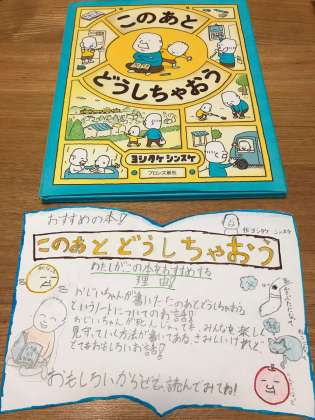 このあと
どうしちゃおう
ヨシタケ シンスケ
ブロンズ新社
おすすめの本!
作 ヨシタケ シンスケ
このあと どうしちゃおう
わたしがこの本をおすすめする
理由!
おじいちゃんが書いた「このあとどうしちゃおう
というノートについてのお話!
おじいちゃんが死んじゃっても、みんなを楽しく
見守っていく方法が書いてある。さみしいけれど、
とてもおもしろいお話!
おもしろいからぜひ読んでみてね!